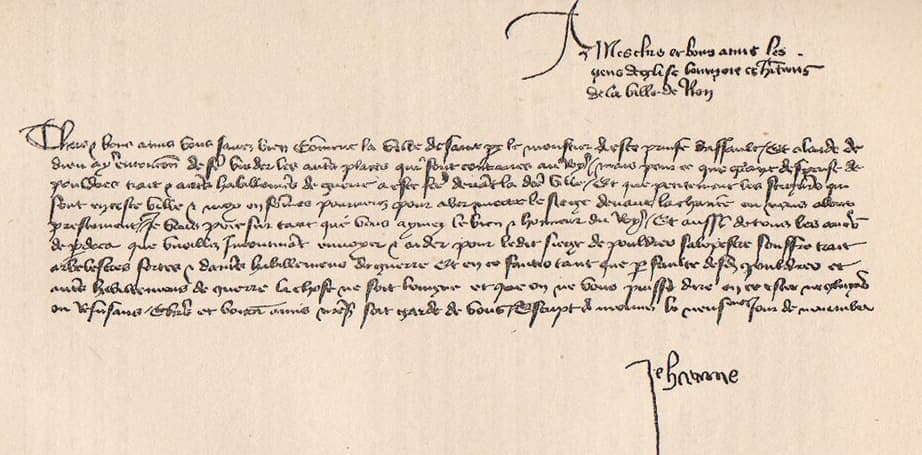 A Mes chers et bons amis les
gens deglise bourgois et habitans
de la ville de Rion
Chers & bons amis vous savez bien comment la ville de saint pere le moustier a este prinse dassault / Et a laide de
dieu ay entencion de faire vuider les autres places qui sont contraires au Roy / mais pour ce que grant despense de
pouldres trait & autres habillemens de guerre a este faicte devant ladicte ville / Et que petitement les seigneurs qui
sont en ceste ville & moy en sommes pourveuz pour aler mectre le siege devant la charite ou nous alons
prestement / Je vous prie sur tant que vous aymez le bien & honneur du Roy / Et aussi de tous les autres
de par deca que vueillez Incontinant envoyer & aider pour ledit siege de pouldres salepestre souffre trait
arbelestres fortes & dautres habillemens de guerre Et en ce faictes tant que par faulte desdictes pouldres et
autres habillemens de guerre la chose ne soit longue et que on ne vous puisse dire en ce estre negligens
ou refusans / Chers et bons amis nostre sire soit garde de vous / Escript a molins le neufviesme Jour de novembre
Jehanne